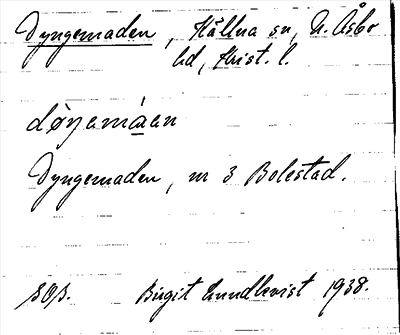 Dyngemaden, Hållna sn, N. Åsbo
hd, Krist. l.
døŋemáen
Dyngemaden, nr 3 Bolestad.
Birgit Lundkvist 1938.